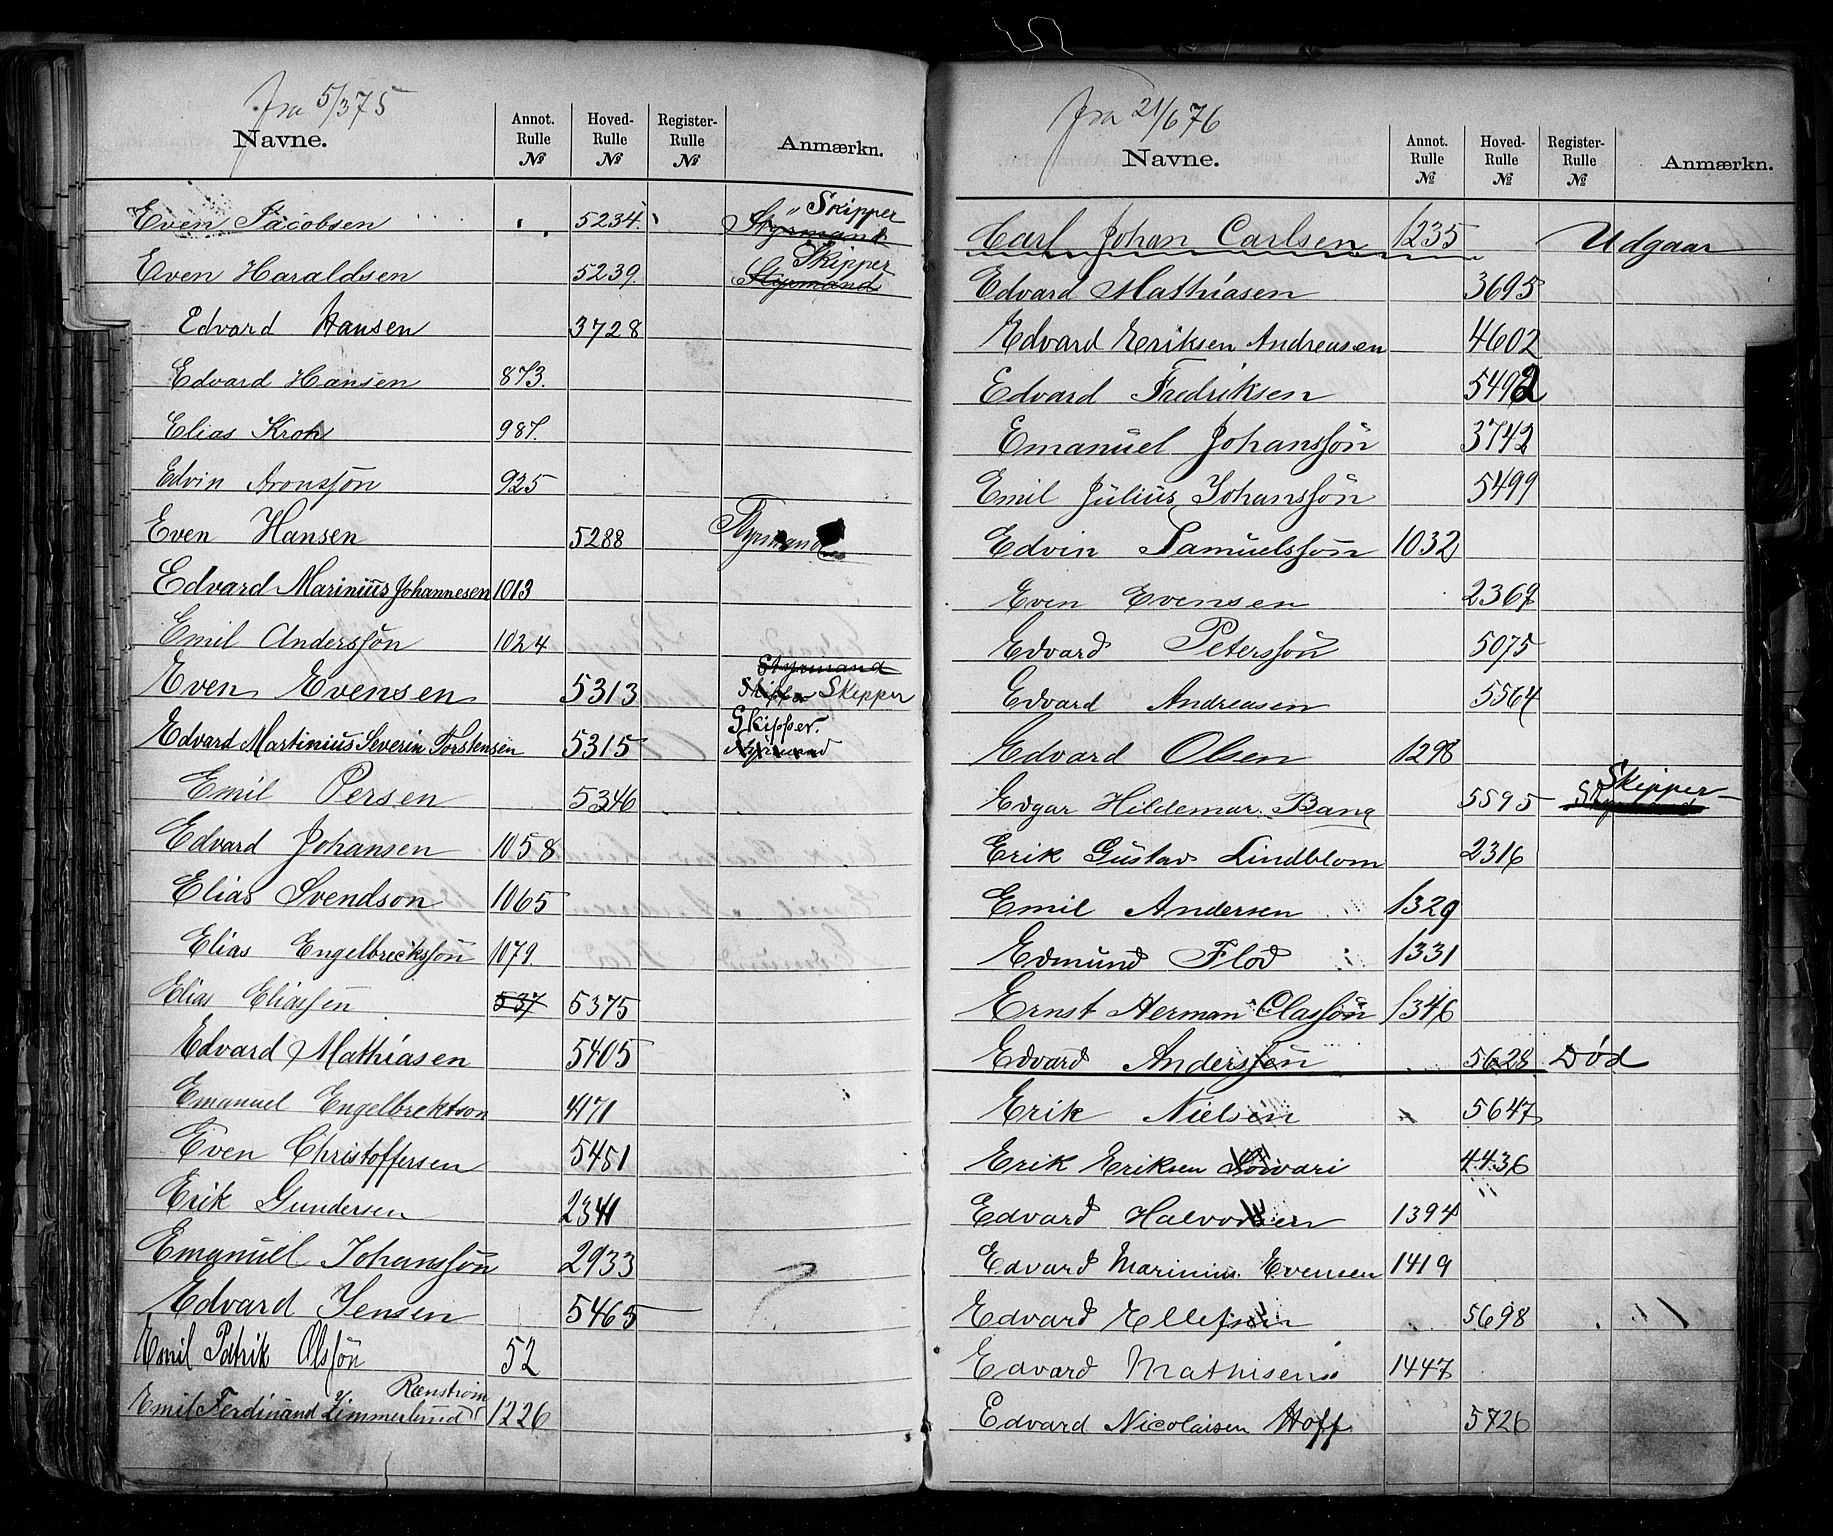 fra 5/3 75
Navne. Annot. Rulle № Hoved-Rulle № Register-Rulle № Anmærkn.
Even Jacobsen 5234. Styrmand Skipper
Even Haraldsen 5239. Styrmand Skipper
Edvard Hansen 3728
Edvard Hansen 873.
Elias Kron 987.
Edvin Aronssøn 925
Even Hansen 5288 Styrmand
Edvard Marinius Johannesen 1013
Emil Anderssøn 1024
Even Evensen 5313 Styrmand Skipper
Edvard Martinius Severin Torstensen 5315 Skipper. Styrmand
Emil Persen 5346
Edvard Johansen 1058
Elias Svendson 1065
Elias Engelbrecktssøn 1079.
Elias Eliassen 537 5375
Edvard Mathiasen 5405
Emanuel Engelbrektson 4171
Even Christoffersen 5451
Erik Gundersen 2341
Emanuel Johanssøn 2933
Edvard Jensen 5465
Emil Patrik Olssøn 52
Emil Ferdinand Zimmerlund Rønstrøm 1226
fra 21/6 76
Navne. Annot. Rulle № Hoved-Rulle № Register-Rulle № Anmærkn.
Carl Johan Carlsen 1235 Udgaar
Edvard Mathiasen 3695
Edvard Eriksen Andreasen 4602
Edvard Fredriksen 5492
Emanuel Johanssøn 3742
Emil Julius Johanssøn 5499
Edvin Samuelssøn 1032
Even Evensen 2369
Edvard Peterssøn 5075
Edvard Andreasen 5564
Edvard Olsen 1298
Edgar Hildemar Bang 5595 Styrmand Skipper
Erik Gustav Lindblom 2316
Emil Andersen 1329
Edmund Flod 1331
Ernst Herman Classøn 1346
Edvard Anderssøn 5628 Død
Erik Nielsen 5647
Erik Eriksen 4436
Edvard Halvorsen 1394
Edvard Marinius Evensen 1419
Edvard Ellefsen 5698
Edvard Mathisen 1447
Edvard Nicolaisen Hoff 5726